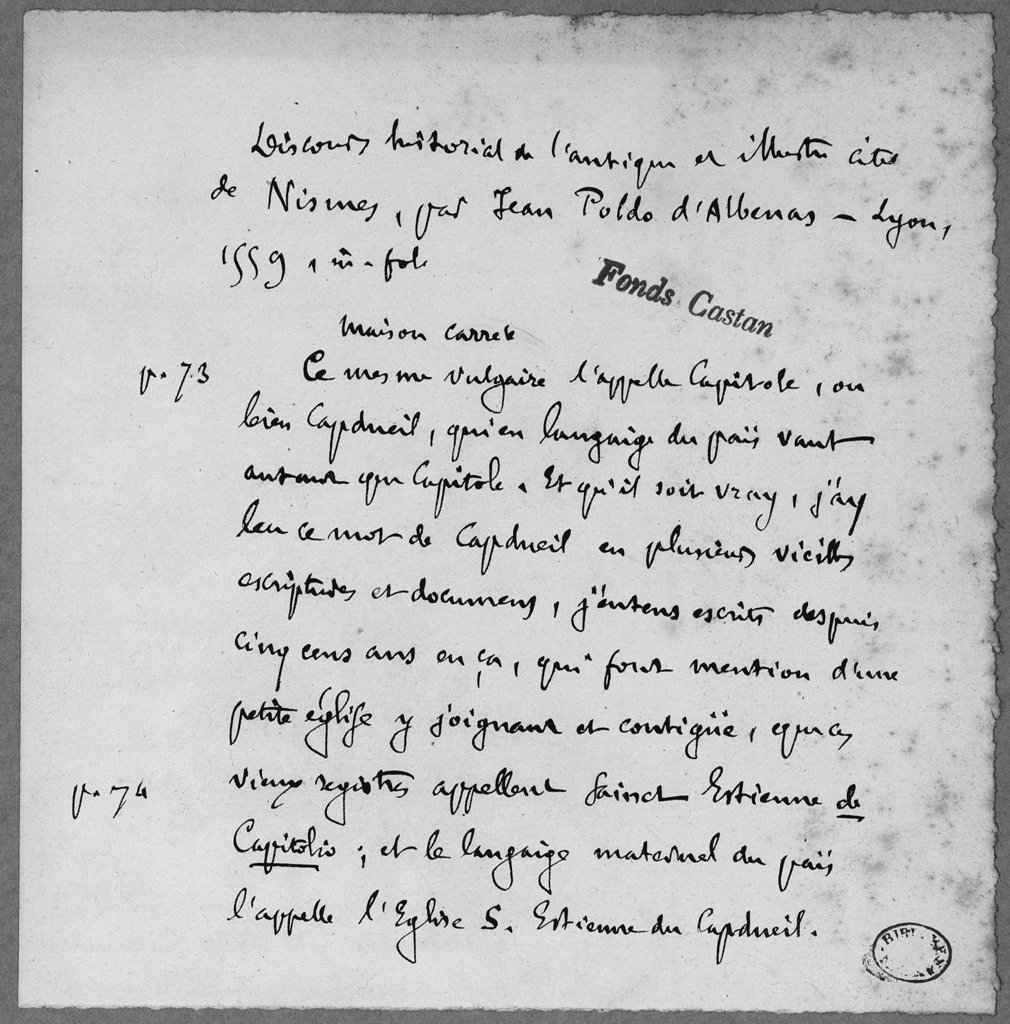 Discours historial de l'antique et illustre cité
de Nismes, par Jean Poldo d'Albenas – Lyon,
1559, in-fol.
Fonds Castan
Maison carrée
p. 73 Ce mesme vulgaire l'appelle Capitole, ou
bien Capdueil, qu'en langaige du païs vaut
autant que Capitole. Et qu'il soit vray, j'ay
leu ce mot de Capdueil en plusieurs vieilles
escriptures et documens, j'entens escrits despuis
cinq cens ans en ça, qui font mention d'une
petite église y joignant et contigüe, que ces
p. 74 vieux registres appellent Sainct Estienne de
Capitolio ; et le langaige maternel du païs
l'appelle l'Eglise S. Estienne du Capdueil.
BIBL